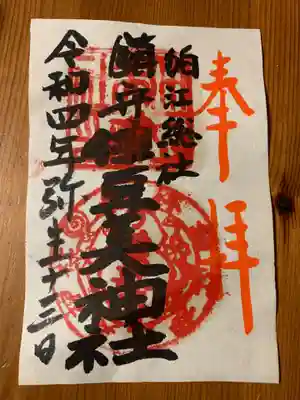 奉拝
狛江総社
鎮守伊豆美神社
令和四年弥生十三日